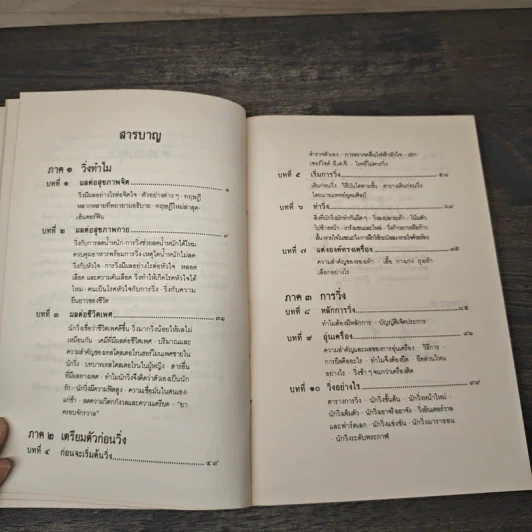 สารบาญ
ภาค ๑ วิ่งทำไม
บทที่ ๑ ผลต่อสุขภาพจิต ๑
วิ่งมีผลอย่างไรต่อจิตใจ - ตัวอย่างต่าง ๆ - ทฤษฎี
หลากหลายที่พยายามอธิบาย - ทฤษฎีใหม่ล่าสุด-
เอ็นดอร์ฟิน
บทที่ ๒ ผลต่อสุขภาพกาย ๙
วิ่งกับการลดน้ำหนัก - การวิ่งช่วยลดน้ำหนักได้ไหม-
ควบคุมอาหารพร้อมการวิ่ง - เหตุใดน้ำหนักไม่ลด
วิ่งกับหัวใจ - การวิ่งมีผลอย่างไรต่อหัวใจ หลอด
เลือด และความดันเลือด - วิ่งทำให้เกิดโรคหัวใจได้
ไหม - คนเป็นโรคหัวใจกับการวิ่ง - วิ่งกับความ
ยืนยาวของชีวิต
บทที่ ๓ ผลต่อชีวิตเพศ ๓๑
นักวิ่งเชื่อว่าชีวิตเพศดีขึ้น - วิ่งมากวิ่งน้อยให้ผลไม่
เหมือนกัน - เคมีที่มีผลต่อชีวิตเพศ - ปริมาณและ
ความสำคัญของเทสโตสเตอโรนฮอร์โมนเพศชายใน
นักวิ่ง - บทบาทเทสโตสเตอโรนในผู้หญิง - สารอื่น
ที่มีผลทางเพศ - ทำไมนักวิ่งจึงคิดว่าตัวเองเป็นนัก
รัก - นักวิ่งมีความฟิตสูง - ความเชื่อมั่นในตนเอง-
แก่ช้า - ลดความวิตกกังวลและความเครียด - “ยา
ครอบจักรวาล”
ภาค ๒ เตรียมตัวก่อนวิ่ง
บทที่ ๔ ก่อนจะเริ่มต้นวิ่ง ๔๙
สำรวจตัวเอง - การตรวจคลื่นไฟฟ้าหัวใจ - เอก
เซอร์ไซส์ อี.เค.จี. - โรคที่ไม่ควรวิ่ง
บทที่ ๕ เริ่มการวิ่ง ๕๗
เดินก่อนวิ่ง - วิธีบันไดสามขั้น - ตารางเดินก่อนวิ่ง
บทที่ ๖ ท่าวิ่ง ๖๗
บทที่ ๗ แต่งองค์ทรงเครื่อง ๗๕
ความสำคัญของรองเท้า - เสื้อ กางเกง ถุงเท้า
เลือกอย่างไร
ภาค ๓ การวิ่ง
บทที่ ๘ หลักการวิ่ง
ทำไมต้องมีหลักการ - บัญญัติเจ็ดประการ
บทที่ ๙ อุ่นเครื่อง ๙๑
ความสำคัญและผลของการอุ่นเครื่อง - วิธีการ -
การยืดคืออะไร - ทำไมจึงต้องยืด - ยืดส่วนไหน
อย่างไร - วิ่งช้า ๆ จนกว่าเครื่องติด
บทที่ ๑๐ วิ่งอย่างไร ๙๙
ตารางการวิ่ง - นักวิ่งขั้นต้น - นักวิ่งหน้าใหม่ -
นักวิ่งเต็มตัว - นักวิ่งเอาจริงเอาจัง - วิ่งอินเตอร์วาล
และฟาร์ตเลก - นักวิ่งแข่งขัน - นักวิ่งมาราธอน
- นักวิ่งระดับพระกาฬ